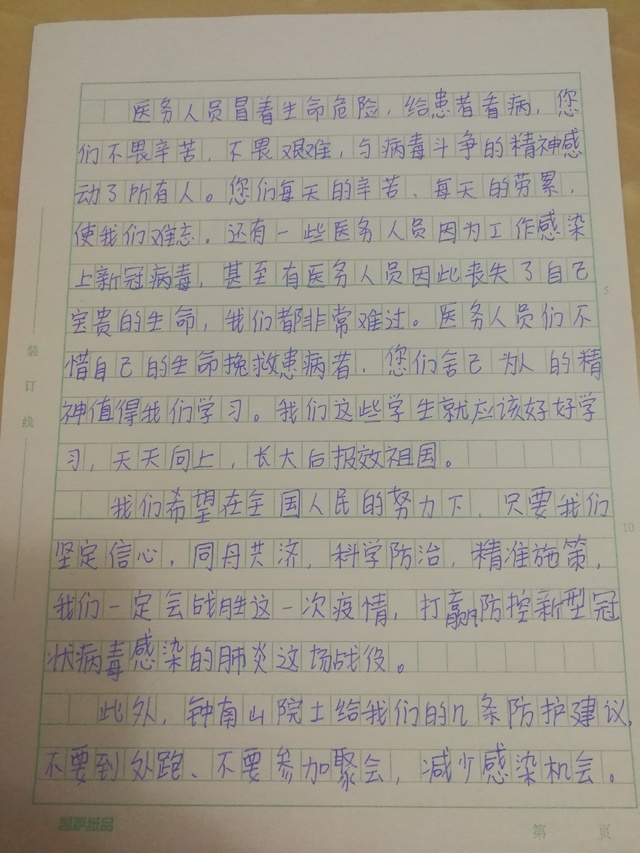 医务人员冒着生命危险，给患者看病，您
们不畏辛苦、不畏艰难，与病毒斗争的精神感
动了所有人。您们每天的辛苦、每天的劳累，
使我们难忘。还有一些医务人员因为工作感染
上新冠病毒，甚至有医务人员因此丧失了自己
宝贵的生命，我们都非常难过。医务人员们不
惜自己的生命挽救患病者，您们舍己为人的精
神值得我们学习。我们这些学生就应该好好学
习，天天向上，长大后报效祖国。
我们希望在全国人民的努力下，只要我们
坚定信心，同舟共济，科学防治，精准施策，
我们一定会战胜这一次疫情，打赢防控新型冠
状病毒感染的肺炎这场战役。
此外，钟南山院士给我们的几条防护建议，
不要到处跑、不要参加聚会，减少感染机会。
装订线
5
10
凯萨纸品
第 页